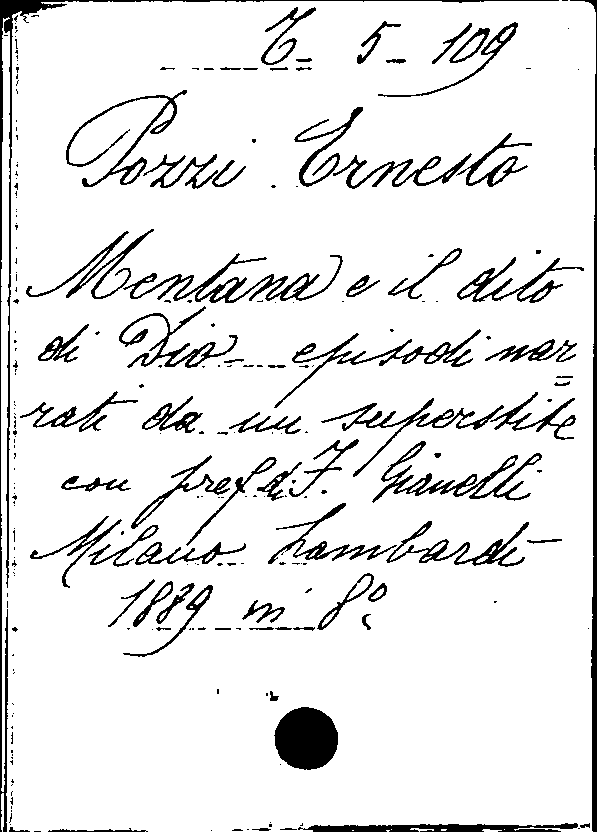 6- 5- 109
Pozzi Ernesto
Mentana e il dito
di Dio - episodi nar=
rati da un superstite
con pref. di F. Gianelli
Milano Lombardi -
1889 in 8º